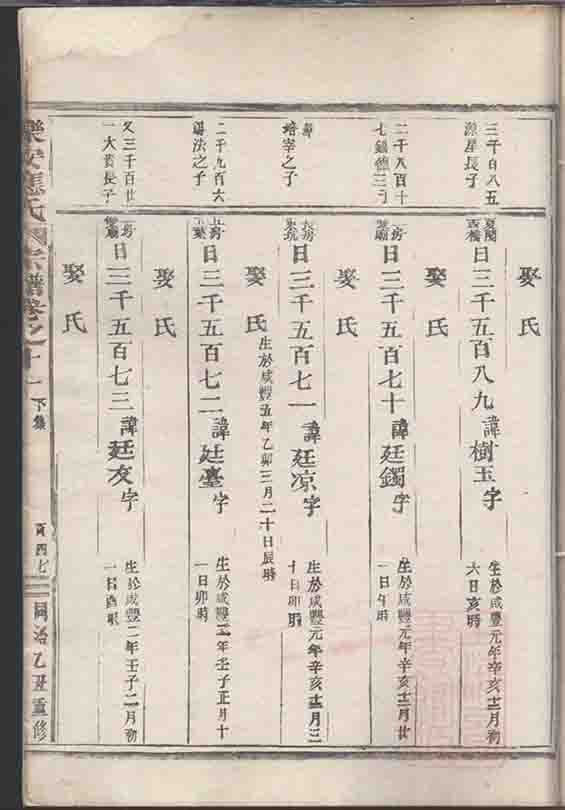 三千百八五
源星長子
夏閣
西橋
日三千五百八九諱樹玉字
生於咸豐元年辛亥十二月初
六日亥時
娶氏
二千八百十
七
房
日三千五百七十諱廷鐲字
生於咸豐元年辛亥十二月廿
一日午時
娶氏
培宰之子
房
日三千五百七一諱廷凉字
生於咸豐元年辛亥十二月二
十日卯時
娶氏
生於咸豐五年乙卯三月二十日辰時
二千九百六
錫法之子
房
日三千五百七二諱廷臺字
生於咸豐二年壬子正月十
一日卯時
娶氏
又三千百廿
一大貴長子
房
日三千五百七三諱廷友字
生於咸豐二年壬子二月初
一日酉時
娶氏
樂安應氏宗譜卷之十一
下集
百四七
同治乙丑重修